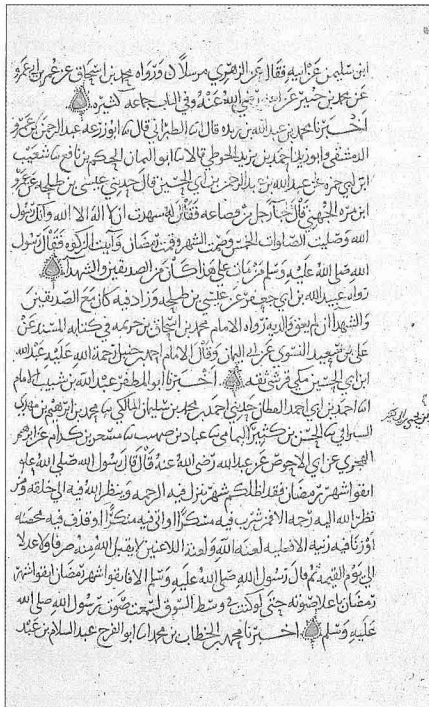 ابن سليمن عن ابيه فقال عن الزهري مرسلا ورواه محمد بن اسحاق عن عمر بن ابي عمرو
عن محمد بن جبير عن ابيه رضي الله عنه وفي الباب جماعه كثيره
اخبرنا محمد بن عبد الله بن ريده قال ثنا الطبراني قال ثنا ابو زرعه عبد الرحمن بن عمرو
الدمشقي وابو زيد احمد بن يزيد الحوطي قالا ثنا ابو اليمان الحكم بن نافع ثنا شعيب
ابن ابي حمزه عن عبد الله بن عبد الرحمن بن ابي الحسين قال حدثني عيسى بن طلحه عن عمرو
ابن مره الجهني قال جا رجل من قضاعه فقال له شهدت ان لا اله الا الله وانك رسول
الله وصليت الصلوات الخمس وصمت الشهر وقمت رمضان وآتيت الزكوه فقال رسول
الله صلى الله عليه وسلم من مات على هذا كان من الصديقين والشهدا
رواه عبيد الله بن ابي جعفر عن عيسى بن طلحه وزاد فيه كان مع الصديقين
والشهدا ان لم يعق والديه رواه الامام محمد بن اسحاق بن خزيمه في كتابه المسند عن
علي بن سعيد النسوي عن ابي اليمان وقال الامام احمد بن حنبل رحمة الله عليه عبد الله
ابن ابي الحسين مكي قرشي ثقه اخبرنا ابو المظفر عبد الله بن شبيب الامام
انا احمد بن ابي احمد القطان حدثني احمد بن محمد بن سليمان المالكي ثنا محمد بن ابرهيم بن مهدي
السيرافي ثنا الحسن بن كثير اليمامي ثنا عباد بن صهيب ثنا مسعر بن كدام عن ابرهيم
الهجري عن ابي الاحوص عن عبد الله رضي الله عنه قال قال رسول الله صلى الله عليه
اتقوا شهر رمضان فقد اظلكم شهر تنزل فيه الرحمه وينظر الله فيه الى خلقه ومن
نظر الله اليه رحمه الا فمن شرب فيه مسكرا او اتى فيه منكرا او قذف فيه محصنه
او زنا فيه زنيه الا فعليه لعنه الله ولعنة اللاعنين لا يقبل الله منه صرفا ولا عدلا
الى يوم القيمه ثم قال رسول الله صلى الله عليه وسلم الا فاتقوا شهر رمضان اتقوا شهر
رمضان باعلا صوته حتى لو كنت في وسط السوق لسمعت صوت رسول الله صلى الله
عليه وسلم اخبرنا محمد بن الخطاب بن محمد انا ابو الفرج عبد السلام بن عبد